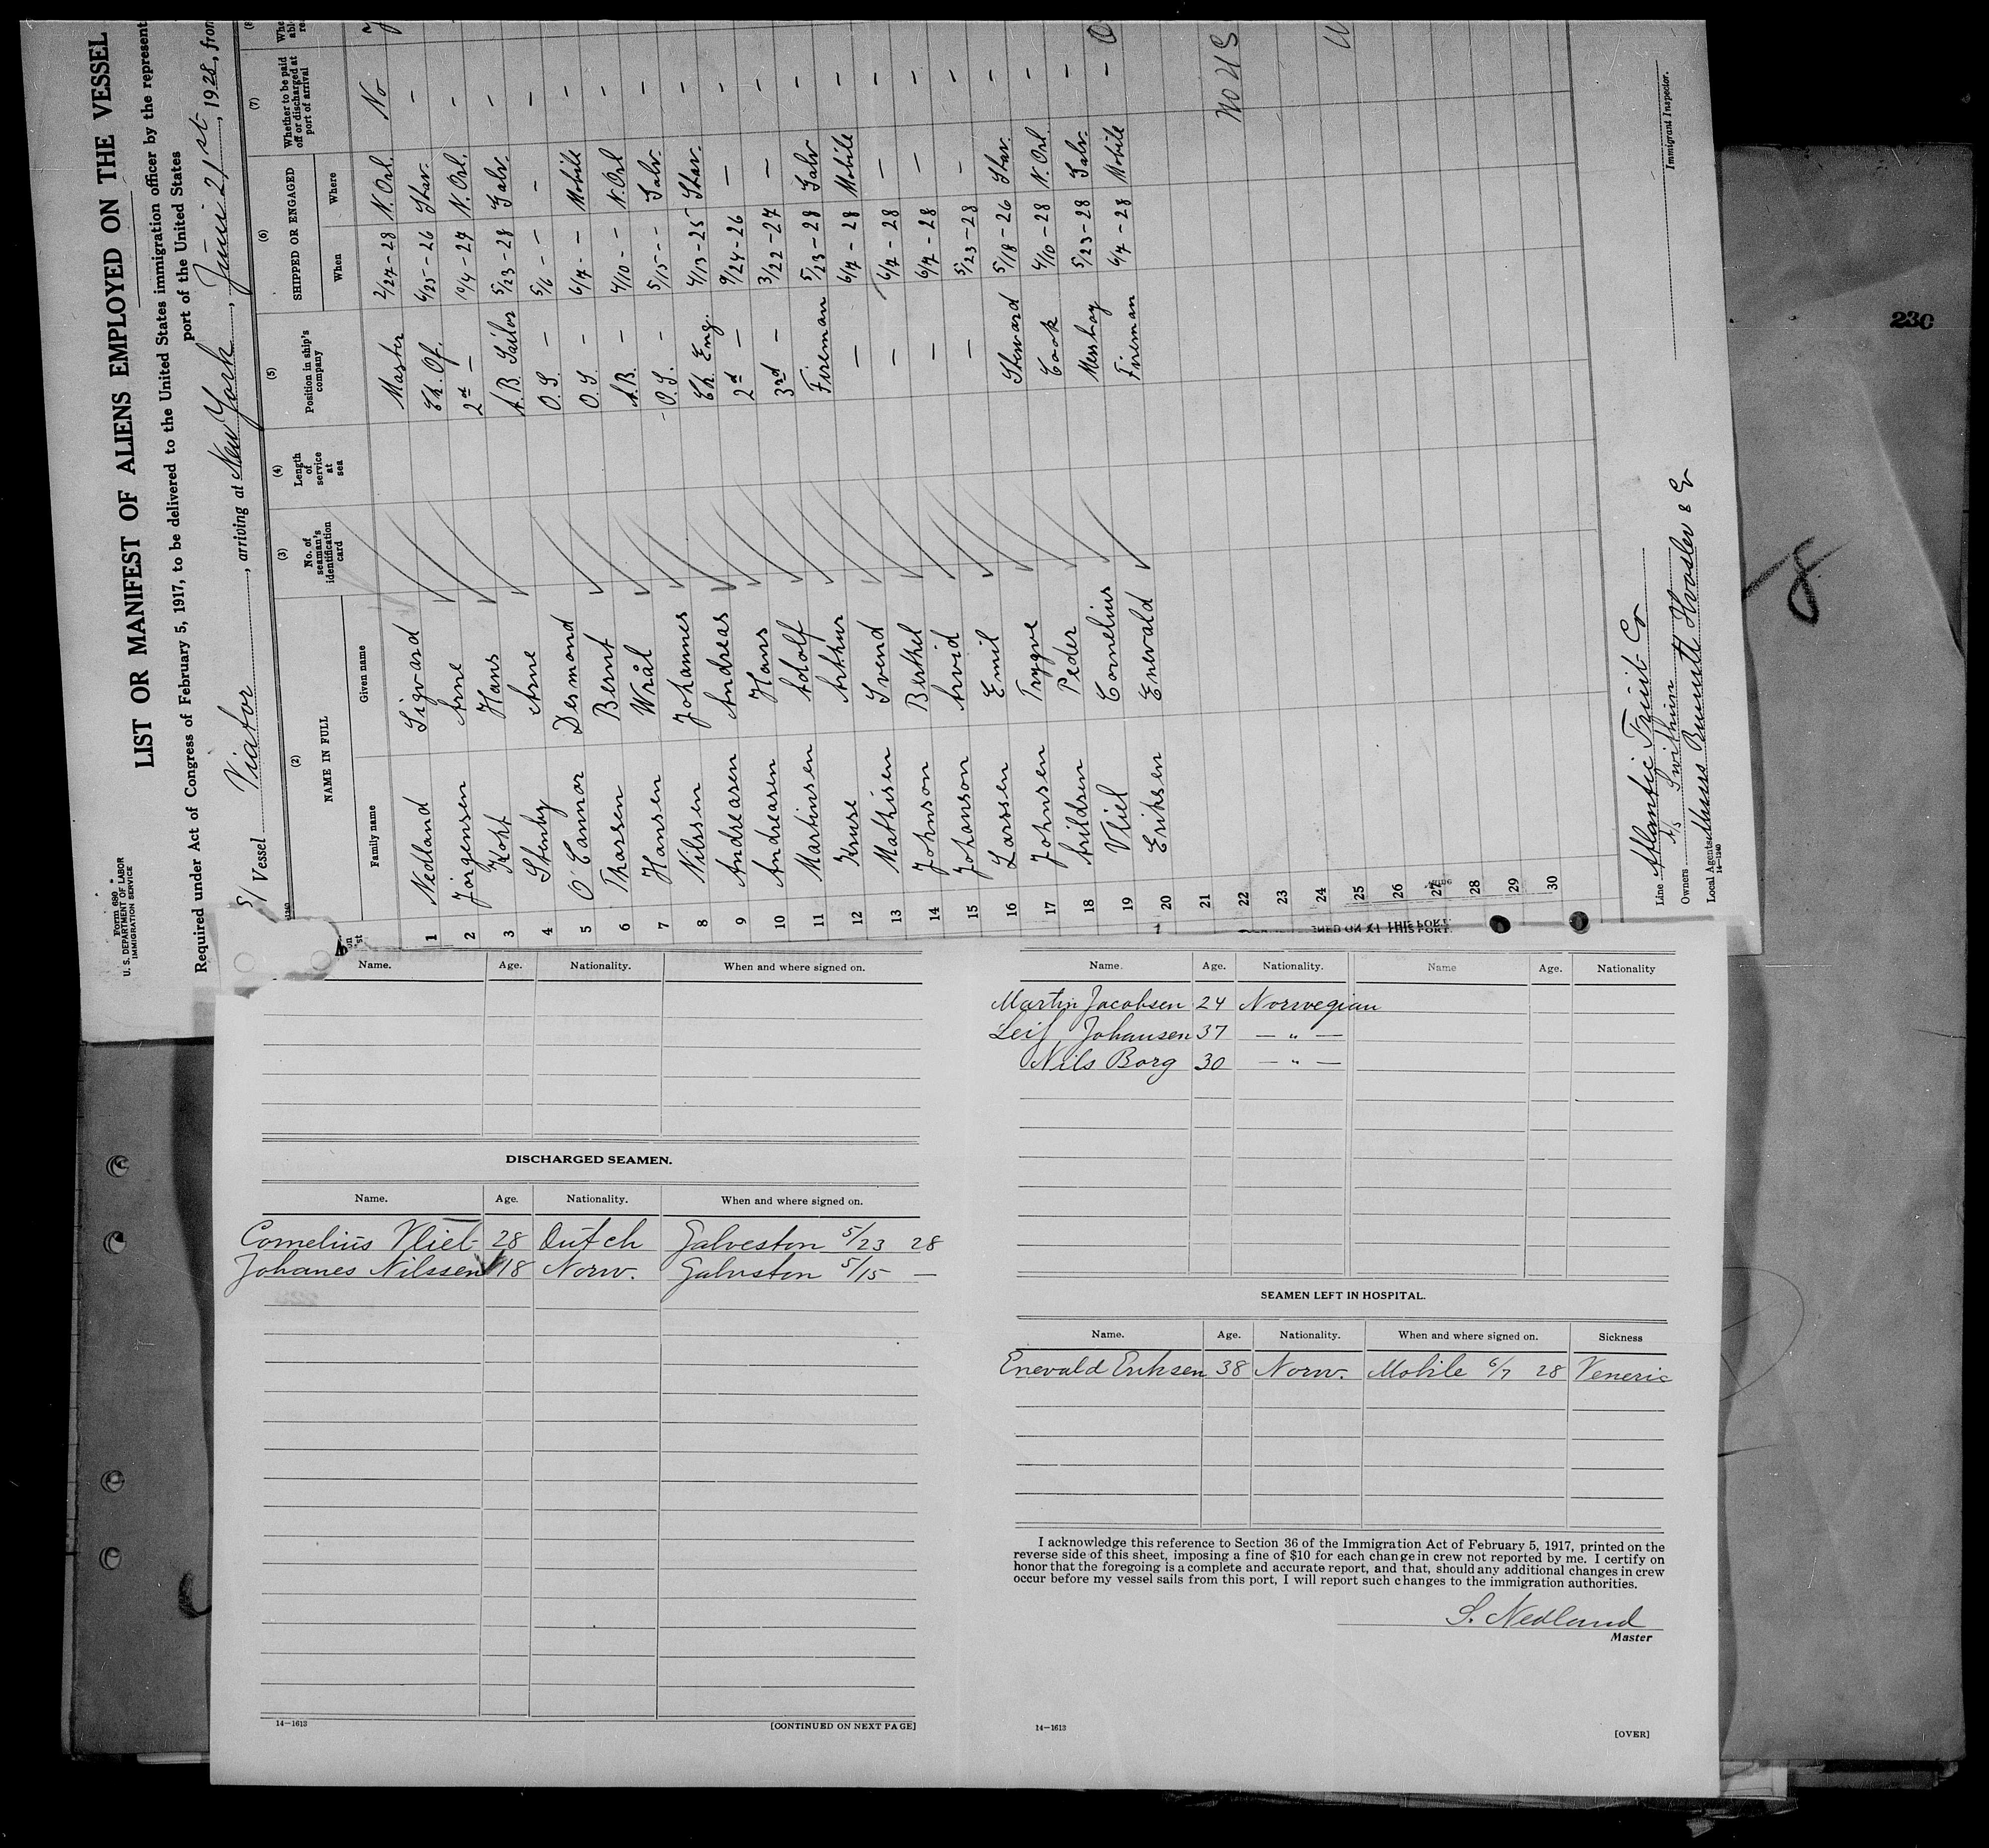 Form 680
U. S. DEPARTMENT OF LABOR
IMMIGRATION SERVICE
LIST OR MANIFEST OF ALIENS EMPLOYED ON THE VESSEL
Required under Act of Congress of February 5, 1917, to be delivered to the United States immigration officer by the represent
port of the United States
S/ Vessel Viator, arriving at New York, Juni 21st, 1928, from
(2) (3) (4) (5) (6) (7)
NAME IN FULL No. of seaman's identification card Length of service at sea Position in ship's company SHIPPED OR ENGAGED Whether to be paid off or discharged at port of arrival
Family name Given name When Where
1 Nedland Sigvard Master 2/27-28 N. Orl. No
2 Jörgensen Arne Ch. Of. 6/25-26 Stav. -
3 Koht Hans 2nd - 10/4-27 N. Orl. -
4 Stenby Arne A.B. Sailor 5/23-28 Galv. -
5 O'Connor Desmond O. S. - 5/6 - - - -
6 Tharsen Bernt O. S. - 6/7 - - Mobile -
7 Hansen Wrål A.B. - 4/10 - - N. Orl -
8 Nilssen Johannes O. S. - 5/15 - - Galv. -
9 Andreasen Andreas Ch. Eng. 4/13-25 Stav. -
10 Andreasen Hans 2nd - 9/24-26 - -
11 Martinsen Adolf 3rd - 3/22-27 - -
12 Kruse Arthur Fireman 5/23-28 Galv -
13 Mathisen Svend - 6/7-28 Mobile -
14 Johnson Berthel - 6/7-28 - -
15 Johanson Arvid - 6/7-28 - -
16 Larssen Emil - 5/23-28 - -
17 Johnsen Trygve Steward 5/18-26 Stav. -
18 Arildsen Peder Cook 4/10-28 N. Orl -
19 Vliel Cornelius Messboy 5/23-28 Galv. -
20 Eriksen Enevald Fireman 6/7-28 Mobile -
21
22 No U S
23
24
25
26
27
28
29
30
Line Atlantic Fruit Co
Owners
Local Agents Bennett &
14-1240
Immigrant Inspector.
230
8
Name. Age. Nationality. When and where signed on.
DISCHARGED SEAMEN.
Name. Age. Nationality. When and where signed on.
Cornelius Vliet 28 Dutch Galveston 5/23 28
Johanes Nilssen 18 Norw. Galveston 5/15 —
14—1613 [CONTINUED ON NEXT PAGE]
Name. Age. Nationality. Name Age. Nationality
Martin Jacobsen 24 Norwegian
Leif Johansen 37 — " —
Nils Borg 30 — " —
SEAMEN LEFT IN HOSPITAL.
Name. Age. Nationality. When and where signed on. Sickness
Enevald Eriksen 38 Norw. Mobile 6/7 28 Veneric
I acknowledge this reference to Section 36 of the Immigration Act of February 5, 1917, printed on the
reverse side of this sheet, imposing a fine of $10 for each change in crew not reported by me. I certify on
honor that the foregoing is a complete and accurate report, and that, should any additional changes in crew
occur before my vessel sails from this port, I will report such changes to the immigration authorities.
S. Nedland
Master
14—1613 [OVER]